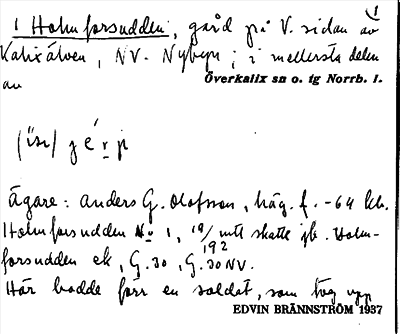 1
1 Holmforsudden, gård på V. sidan av
Kalixälven, NV. Nybyn; i mellersta delen
av Överkalix sn o. tg Norrb. l.
Ägare: Anders G. Olofsson, häg. f. -64 hb.
Holmforsudden No 1, 19/192 mtl skatte jb. Holm-
forsudden ek, G.30, G.30 NV.
Här bodde förr en soldat, som tog upp
EDVIN BRÄNNSTRÖM 1937